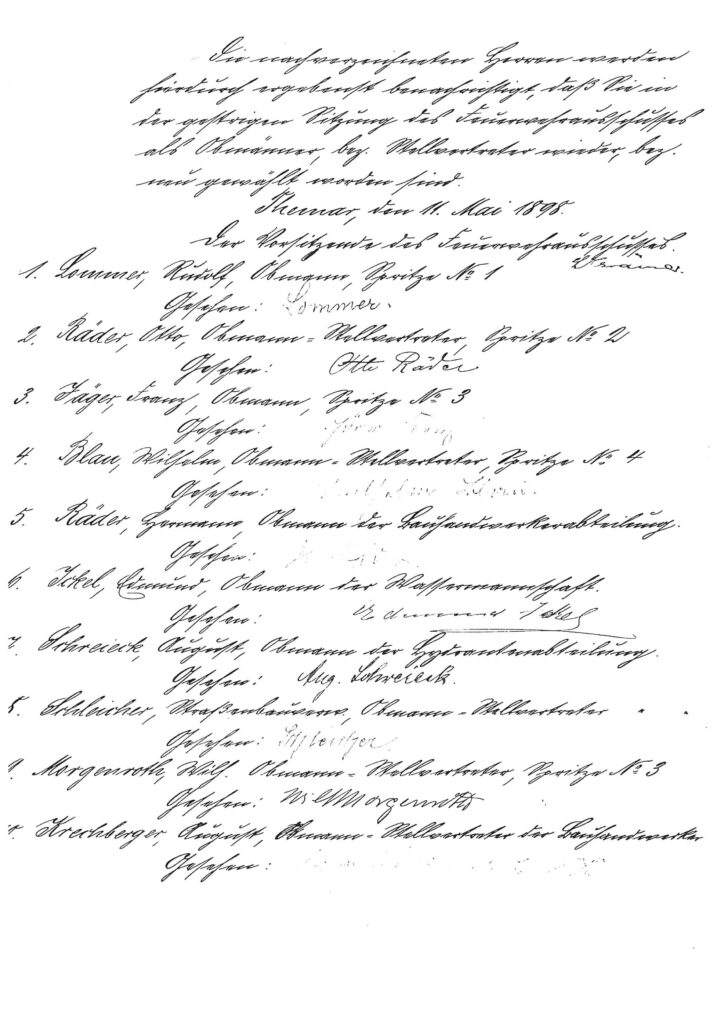 Die nachverzeichneten Herren werden
hierdurch ergebenst benachrichtigt, daß Sie in
der gestrigen Sitzung des Feuerwehrausschusses
als Obmänner, bez. Stellvertreter wieder, bez.
neu gewählt worden sind.
Themar, den 11. Mai 1898.
Der Vorsitzende des Feuerwehrausschusses.
1. Lommer, Rudolf, Obmann, Spritze No 1
Gesehen: Lommer.
2. Räder, Otto, Obmann-Stellvertreter, Spritze No 2
Gesehen: Otto Räder
3. Jäger, Franz, Obmann, Spritze No 3
Gesehen: Franz
4. Blau, Wilhelm, Obmann-Stellvertreter, Spritze No 4
Gesehen: Wilhelm
5. Räder, Hermann, Obmann der Bauhandwerkerabteilung.
Gesehen:
6. Ickel, Edmund, Obmann der Wassermannschaft.
Gesehen: Edmund Ickel
7. Schreieck, August, Obmann der Hydrantenabteilung.
Gesehen: Aug. Schreieck.
8. Schleicher, Straßenbauverw, Obmann-Stellvertreter " "
Gesehen: Schleicher
9. Morgenroth, Wilh. Obmann-Stellvertreter, Spritze No 3
Gesehen: Wilh Morgenroth
Krechberger, August, Obmann-Stellvertreter der Bauhandwerker
Gesehen: